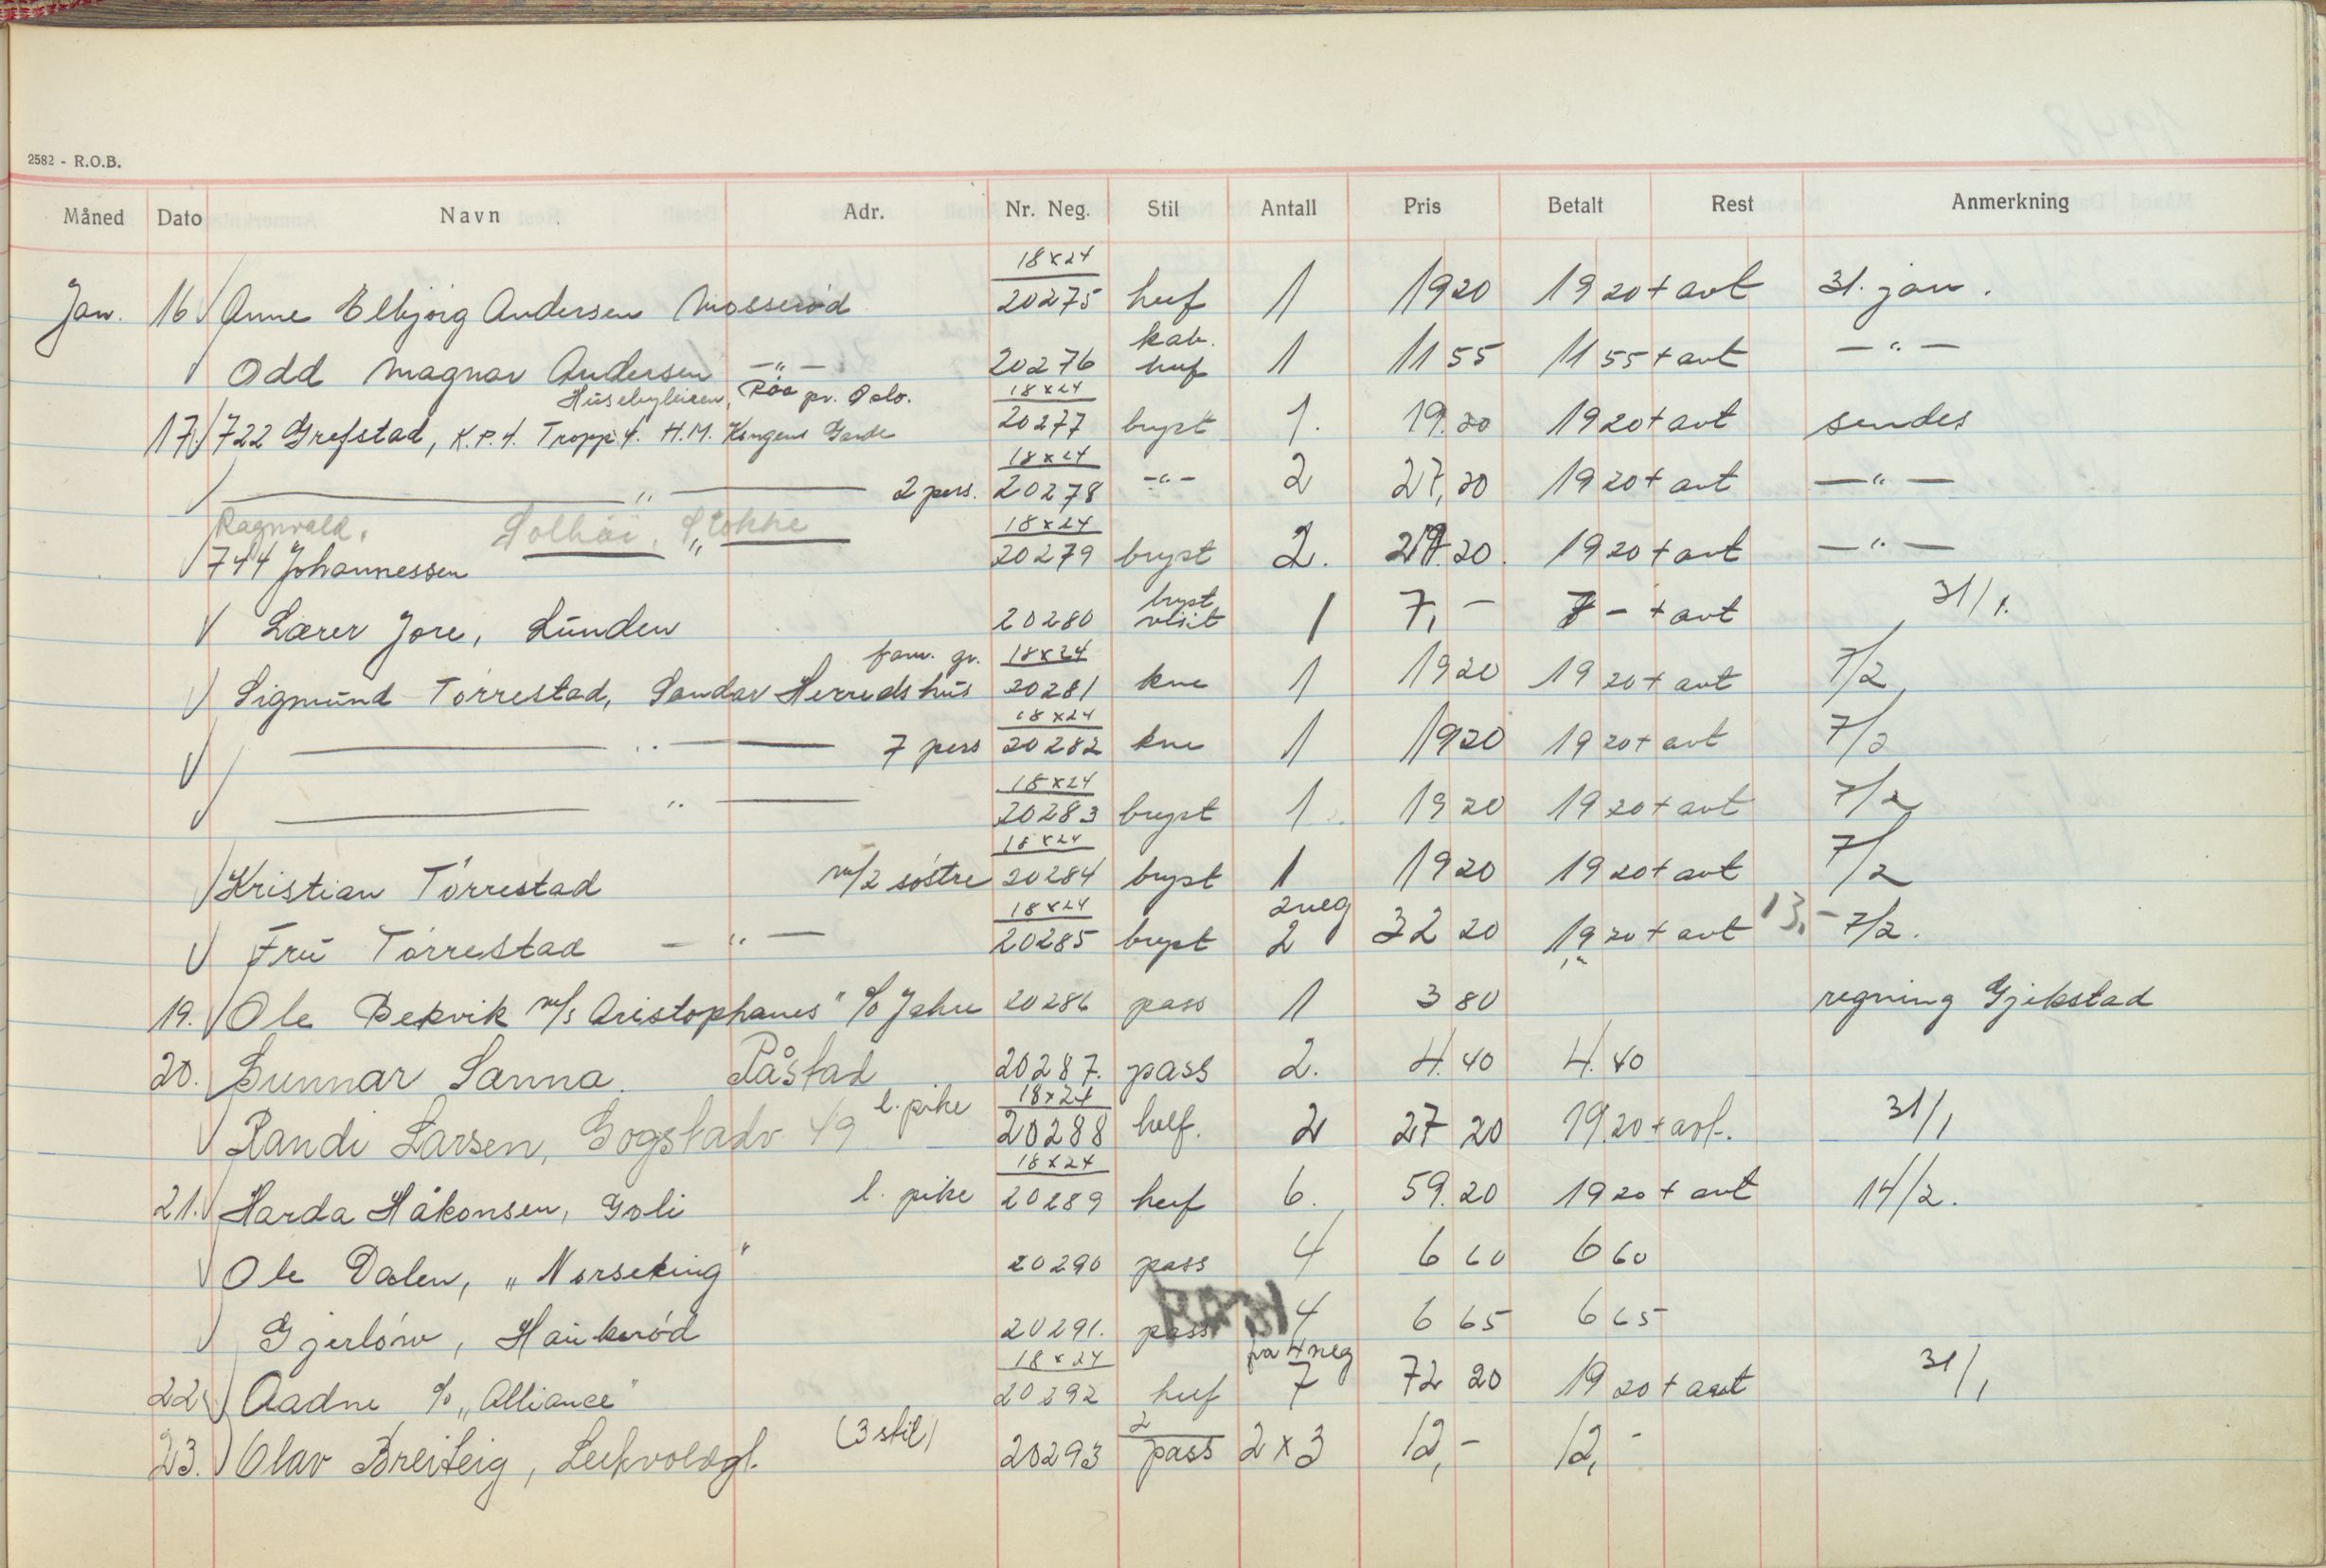 2582 - R.O.B.
Måned Dato Navn Adr. Nr. Neg. Stil Antall Pris Betalt Rest Anmerkning
18x24
Jan. 16 Anne Elbjörg Andersen Moeseröd 20275 huf 1 19 20 19 20 + avt 31. jan.
kab.
Odd Magnar Andersen —"— 20276 huf 1 11 55 11 55 + avt —"—
Husebyleiren, Röa pr. Oslo. 18x24
17. 722 Grefstad, K.P.4. Tropp 4. H.M. Kongens Garde 20277 bryst 1. 19.20 19 20 + avt sendes
18x24
" 2 pers. 20278 —"— 2 27,20 19 20 + avt —"—
Ragnvald. Solhöi, Stokke 18x24
744 Johannessen " 20279 bryst 2. 27.20. 19 20 + avt —"—
bryst
Lærer Jore, Lunden 20280 visit 1 7,- 7 - + avt 31/1.
fam. gr. 18x24
Sigmund Torrestad, Sandar Herredshus 20281 kne 1 19 20 19 20 + avt 7/2
18x24
" 7 pers 20282 kne 1 19 20 19 20 + avt 7/2
18x24
" 20283 bryst 1 19 20 19 20 + avt 7/2
18x24
Kristian Torrestad m/2 söstre 20284 bryst 1 19 20 19 20 + avt 7/2
18x24 2 neg
Fru Torrestad —"— 20285 bryst 2 32 20 19 20 + avt 13,- 7/2.
19. Ole Bekvik m/s Aristophanes" c/o Jahre 20286 pass 1 3 80 regning Gjekstad
20. Gunnar Sanna. Råstad 20287. pass 2. 4.40 4.40
l. pike 18x24
Randi Larsen, Gogstadv 49 20288 helf. 2 27 20 19.20 + avt. 31/1
18x24
21. Harda Håkonsen, Goli l. pike 20289 huf 6. 59.20 19 20 + avt 14/2.
Ole Dalen, „Norseking" 20290 pass 4 6 60 6 60
Gjerlöw, Haukeröd 20291. pass 4 6 65 6 65
18x24 på 4 neg
22. Aadne c/o „Alliance" 20292 huf 7 72 20 19 20 + avt 31/1
(3 stil) 2
23. Olav Breiteig, Lekvoldgt. 20293 pass 2 x 3 12,- 12,-